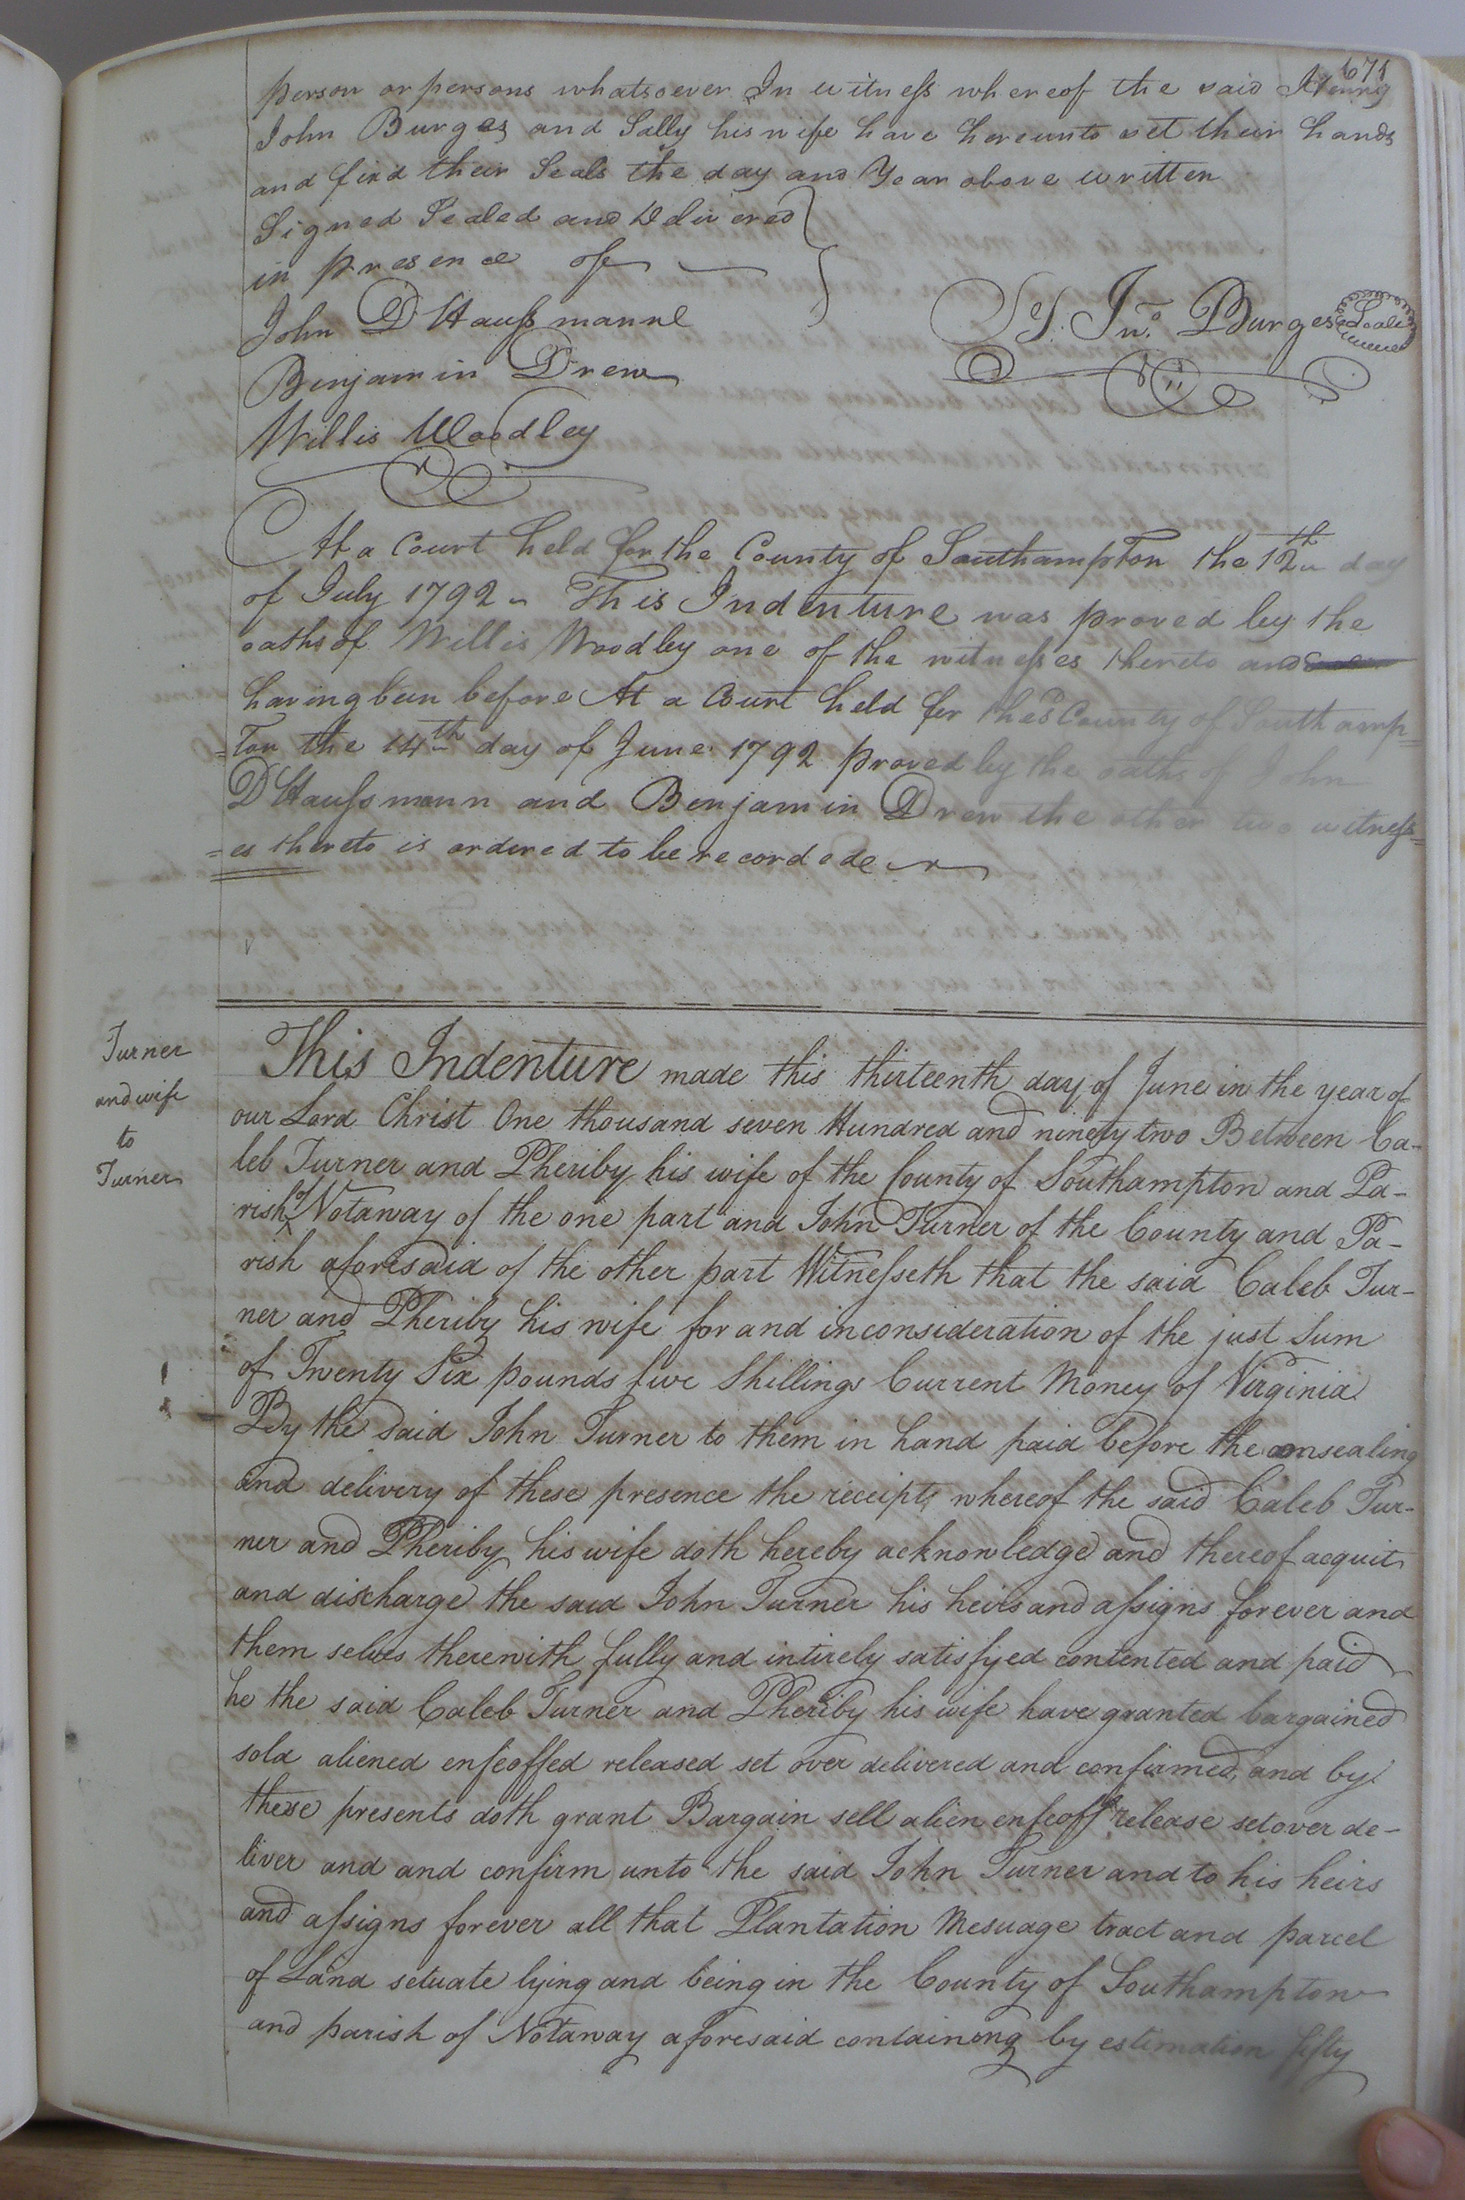 671
person or persons whatsoever In witness whereof the said Henry
John Burges and Sally his wife have hereunto set their hands
and fixd their Seals the day and Year above written
Signed Sealed and Delivered
in presence of
John D Haussmann
H. Jno. Burges Seal
Benjamin Drew
Willis Woodley
At a Court held for the County of Southampton the 12th day
of July 1792 - This Indenture was proved by the
oaths of Willis Woodley one of the witnesses thereto and
having been before At a Court held for the sd County of Southamp=
=ton the 14th day of June 1792 proved by the oaths of John
D Haussmann and Benjamin Drew the other two witness=
=es thereto is ordered to be recorded
Turner
and wife
to
Turner
This Indenture made this thirteenth day of June in the year of
our Lord Christ One thousand seven Hundred and ninety two Between Ca-
leb Turner and Pheriby his wife of the County of Southampton and Pa-
rish of Notaway of the one part and John Turner of the County and Pa-
rish aforesaid of the other part Witnesseth that the said Caleb Tur-
ner and Pheriby his wife for and in consideration of the just Sum
of Twenty Six pounds five Shillings Current Money of Virginia
By the said John Turner to them in hand paid before the ensealing
and delivery of these presence the receipt whereof the said Caleb Tur-
ner and Pheriby his wife doth hereby acknowledge and thereof acquit
and discharge the said John Turner his heirs and assigns forever and
them selves therewith fully and intirely satisfyed contented and paid
he the said Caleb Turner and Pheriby his wife have granted bargained
sold aliened enfeoffed released set over delivered and confirmed, and by
these presents doth grant Bargain sell alien enfeoff release set over de-
liver and and confirm unto the said John Turner and to his heirs
and assigns forever all that Plantation Mesuage tract and parcel
of Land setuate lying and being in the County of Southampton
and parish of Notaway aforesaid containing by estimation fifty